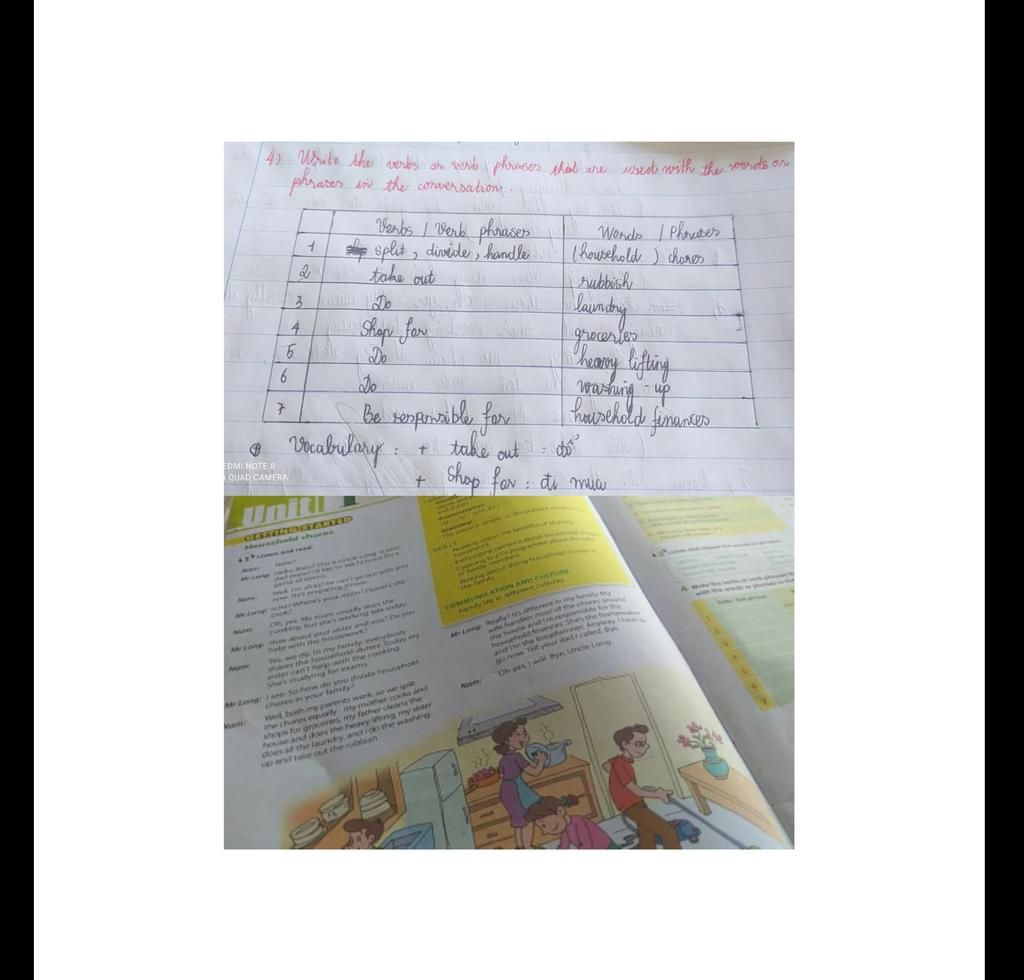 4) Write the verbs or verb phrases that are used with the words or
phrases in the conversation.
Verbs / Verb phrases Words / Phrases
1 split, divide, handle (household) chores
2 take out rubbish
3 Do laundry
4 Shop for groceries
5 Do heavy lifting
6 Do washing-up
7 Be responsible for household finances
Vocabulary: + take out: đổ
+ Shop for: đi mua
EDMI NOTE 8
QUAD CAMERA
Unit 1
GETTING STARTED
Household chores
Listen and read.
Nam: Hello?
Mr Long: Hello, Nam? This is Uncle Long. Is your
Nam:
Mr Long:
Nam: Oh, yes. My mum usually does the
cooking, but she's working late today.
Mr Long: How about your sister and you? Do you
help with the housework?
Nam: Yes, we do. In my family, everybody
shares the household duties. Today my
sister can't help with the cooking.
She's studying for exams.
Mr Long: I see. So how do you divide household
chores in your family?
Nam: Well, both my parents work, so we split
the chores equally - my mother cooks and
shops for groceries, my father cleans the
house and does the heavy lifting, my sister
does all the laundry, and I do the washing
up and take out the rubbish.
SKILLS
COMMUNICATION AND CULTURE
Family life in different cultures
Mr Long: Really? It's different in my family. My
wife handles most of the chores around
the house and I'm responsible for the
household finances. She's the homemaker
and I'm the breadwinner. Anyway, I have to
go now. Tell your dad I called. Bye.
Nam: Oh yes, I will. Bye, Uncle Long.
1
2
3
4
5
6
7